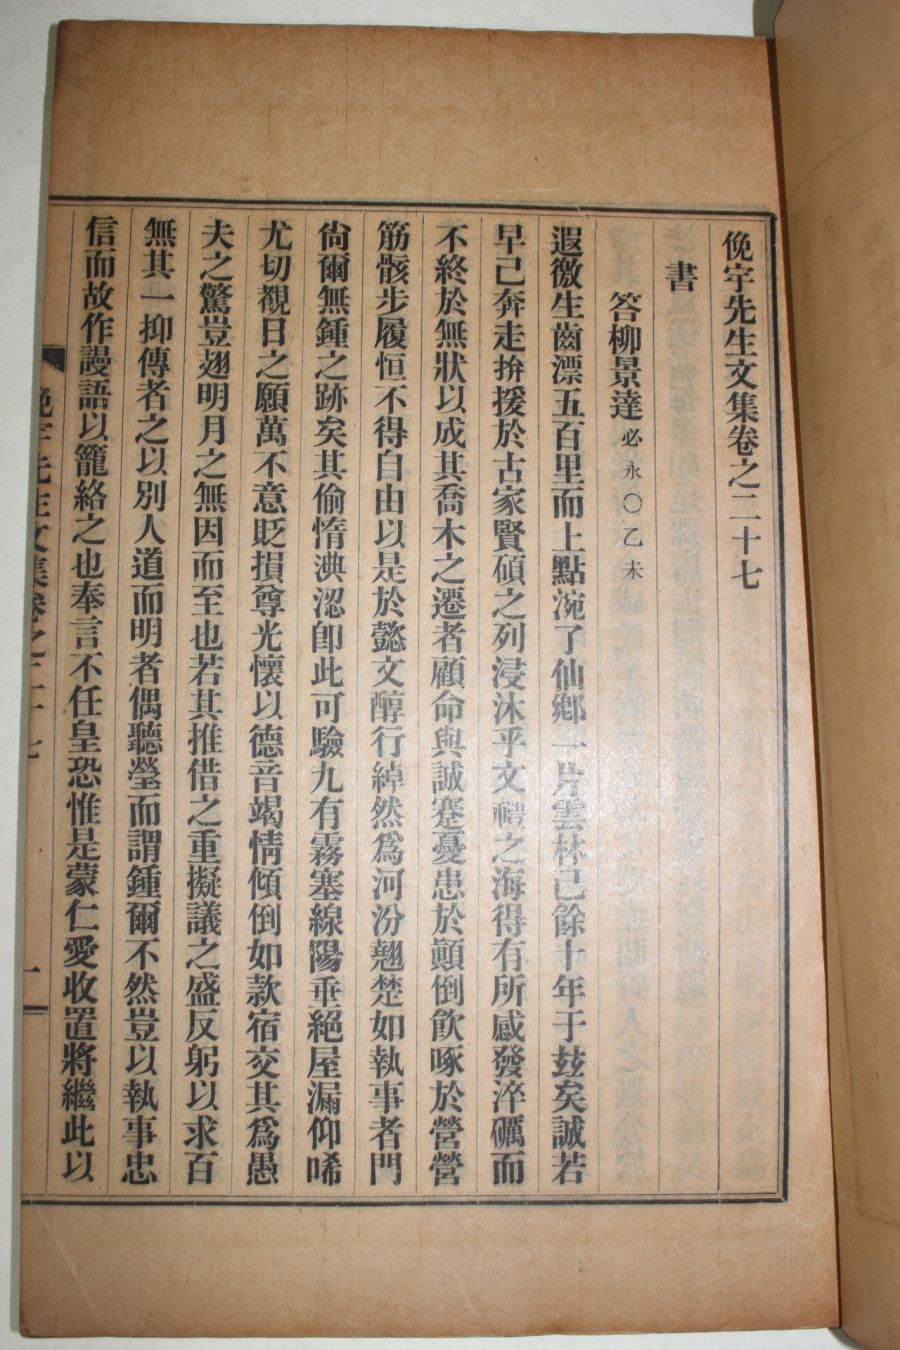 俛宇先生文集卷之二十七
書
答柳景達必永○乙未
遐徼生齒漂五百里而上點涴了仙鄕一片雲林已餘十年于玆矣誠若
早已奔走拚援於古家賢碩之列浸沐乎文禮之海得有所感發淬礪而
不終於無狀以成其喬木之遷者顧命與誠蹇憂患於顚倒飮啄於營營
筋骸步履恒不得自由以是於懿文醇行綽然爲河汾翹楚如執事者門
尙爾無鍾之跡矣其偷惰淟涊卽此可驗九有霧塞線陽垂絕屋漏仰唏
尤切覩日之願萬不意貶損尊光懷以德音竭情傾倒如款宿交其爲愚
夫之驚豈翅明月之無因而至也若其推借之重擬議之盛反躬以求百
無其一抑傳者之以別人道而明者偶聽瑩而謂鍾爾不然豈以執事忠
信而故作謾語以籠絡之也奉言不任皇恐惟是蒙仁愛收置將繼此以
俛宇先生文集卷之二十七
一